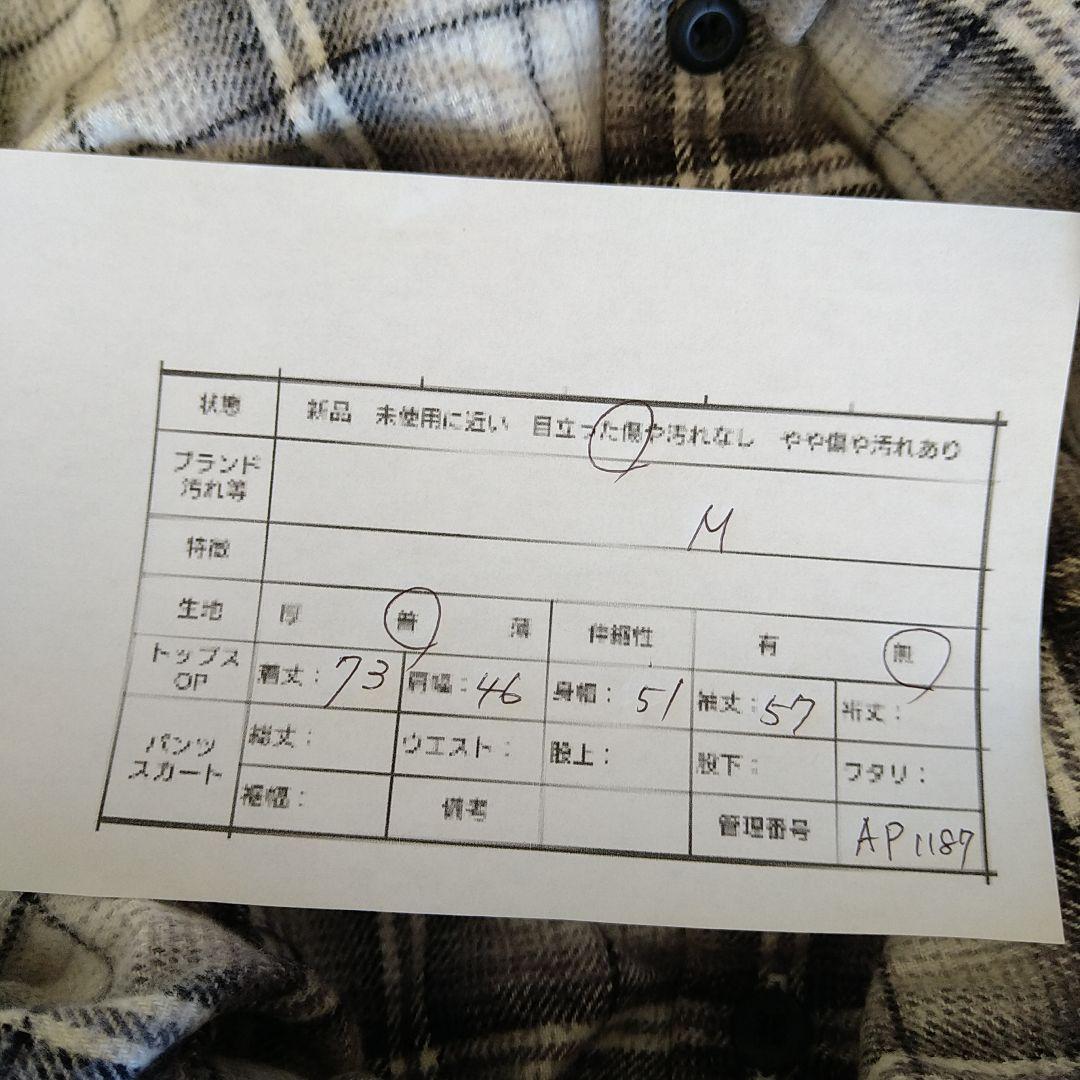 状態 新品 未使用に近い 目立った傷や汚れなし やや傷や汚れあり
ブランド
汚れ等
M
特徴
生地 厚 普 薄 伸縮性 有 無
トップス
OP
着丈：73 肩幅：46 身幅：51 袖丈：57 裄丈：
パンツ
スカート
総丈： ウエスト： 股上： 股下： ワタリ：
裾幅： 備考 管理番号 AP1187